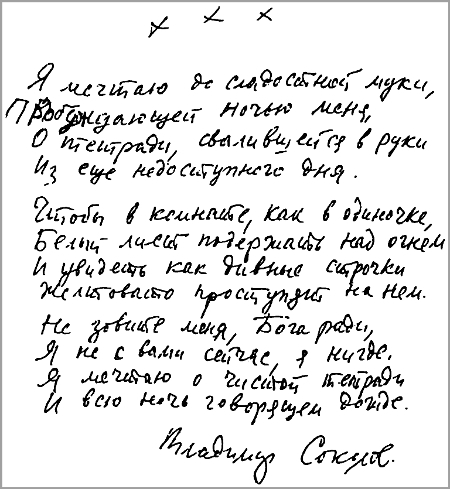 × × ×
Я мечтаю до сладостной муки,
Пробуждающей ночью меня,
О тетради, свалившейся в руки
Из еще недоступного дня.
Чтобы в комнате, как в одиночке,
Белый лист подержать над огнем
И увидеть как дивные строчки
Желтовато проступят на нем.
Не зовите меня, Бога ради,
Я не с вами сейчас, я нигде.
Я мечтаю о чистой тетради
И всю ночь говорящем дожде.
Владимир Соколов.